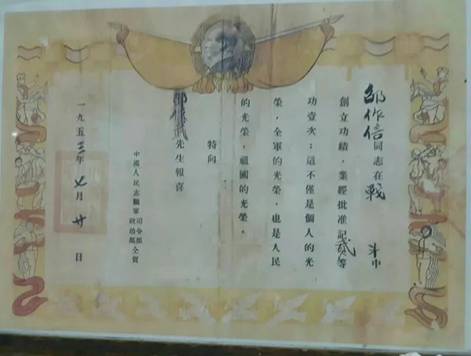 邵作信同志在戰斗中
創立功績，業經批准記貳等
功壹次；這不僅是個人的光
榮，全軍的光榮，也是人民
的光榮，祖國的光榮。
特向
先生報喜
中國人民志願軍
司令部
政治部
仝賀
一九五三年七月廿日